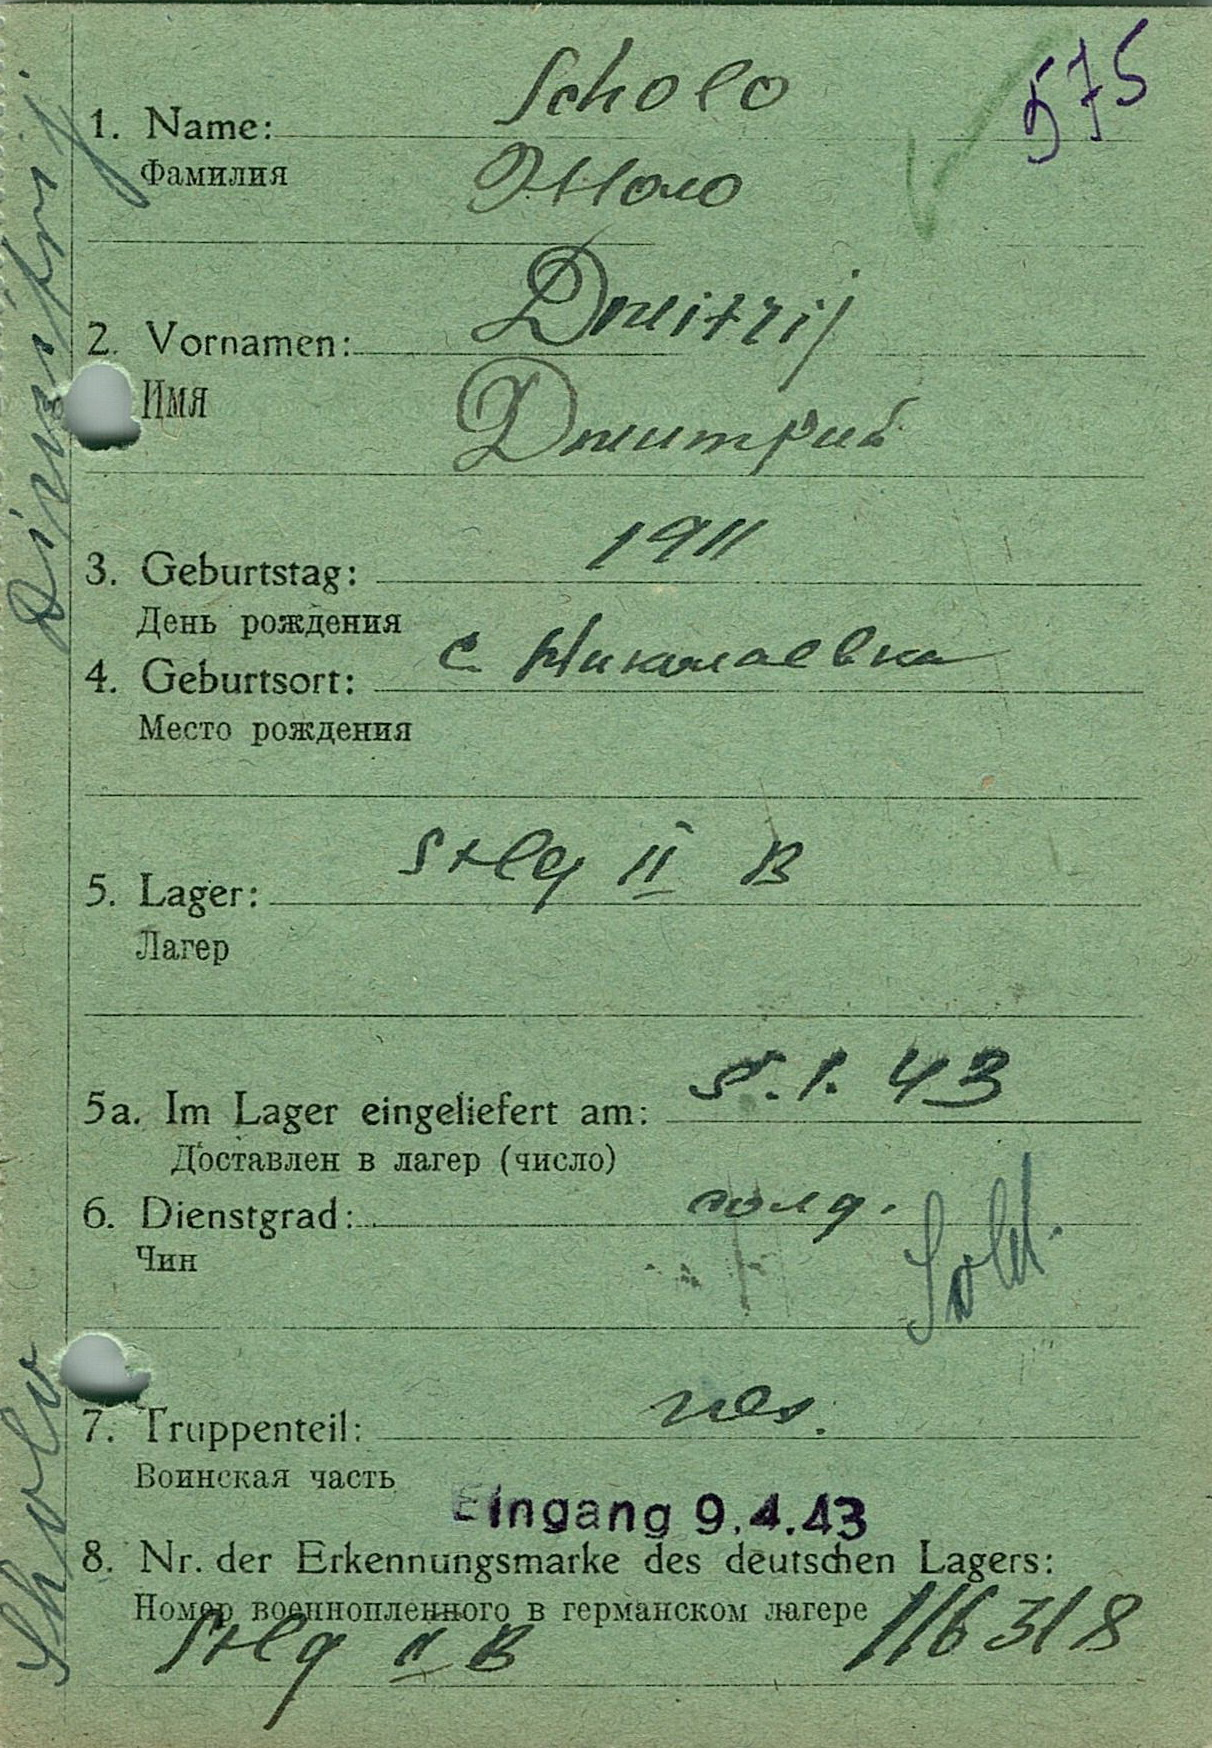 575
Scholo
1. Name:
Фамилия
Жоло
Dmitrij
2. Vornamen:
Имя
Дмитрий
1911
3. Geburtstag:
День рождения
с Николаевка
4. Geburtsort:
Место рождения
Stlg II B
5. Lager:
Лагер
5.1.43
5a. Im Lager eingeliefert am:
Доставлен в лагер (число)
6. Dienstgrad: солд.
Чин
Sold.
7. Truppenteil:
Воинская часть
Eingang 9.4.43
8. Nr. der Erkennungsmarke des deutschen Lagers:
Номер военнопленного в германском лагере
Stlg II B 116318
Sholo Dimitrij